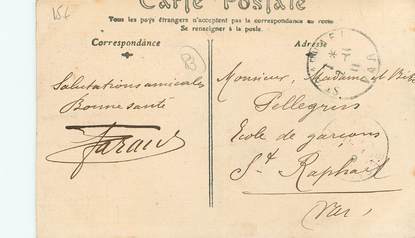 15f
Carte Postale
Tous les pays étrangers n'acceptent pas la correspondance au recto
Se renseigner à la poste.
Correspondance
Adresse
Salutations amicales
Bonne santé
Monsieur, Madame et
Pellegrin
Ecole de garçons
St Raphaël
Var
VAR